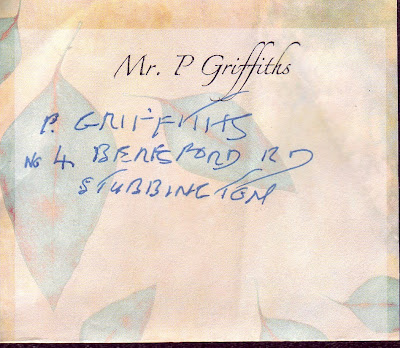 Mr. P Griffiths
P. GRIFFITHS
No 4 BERESFORD RD
STUBBINGTON